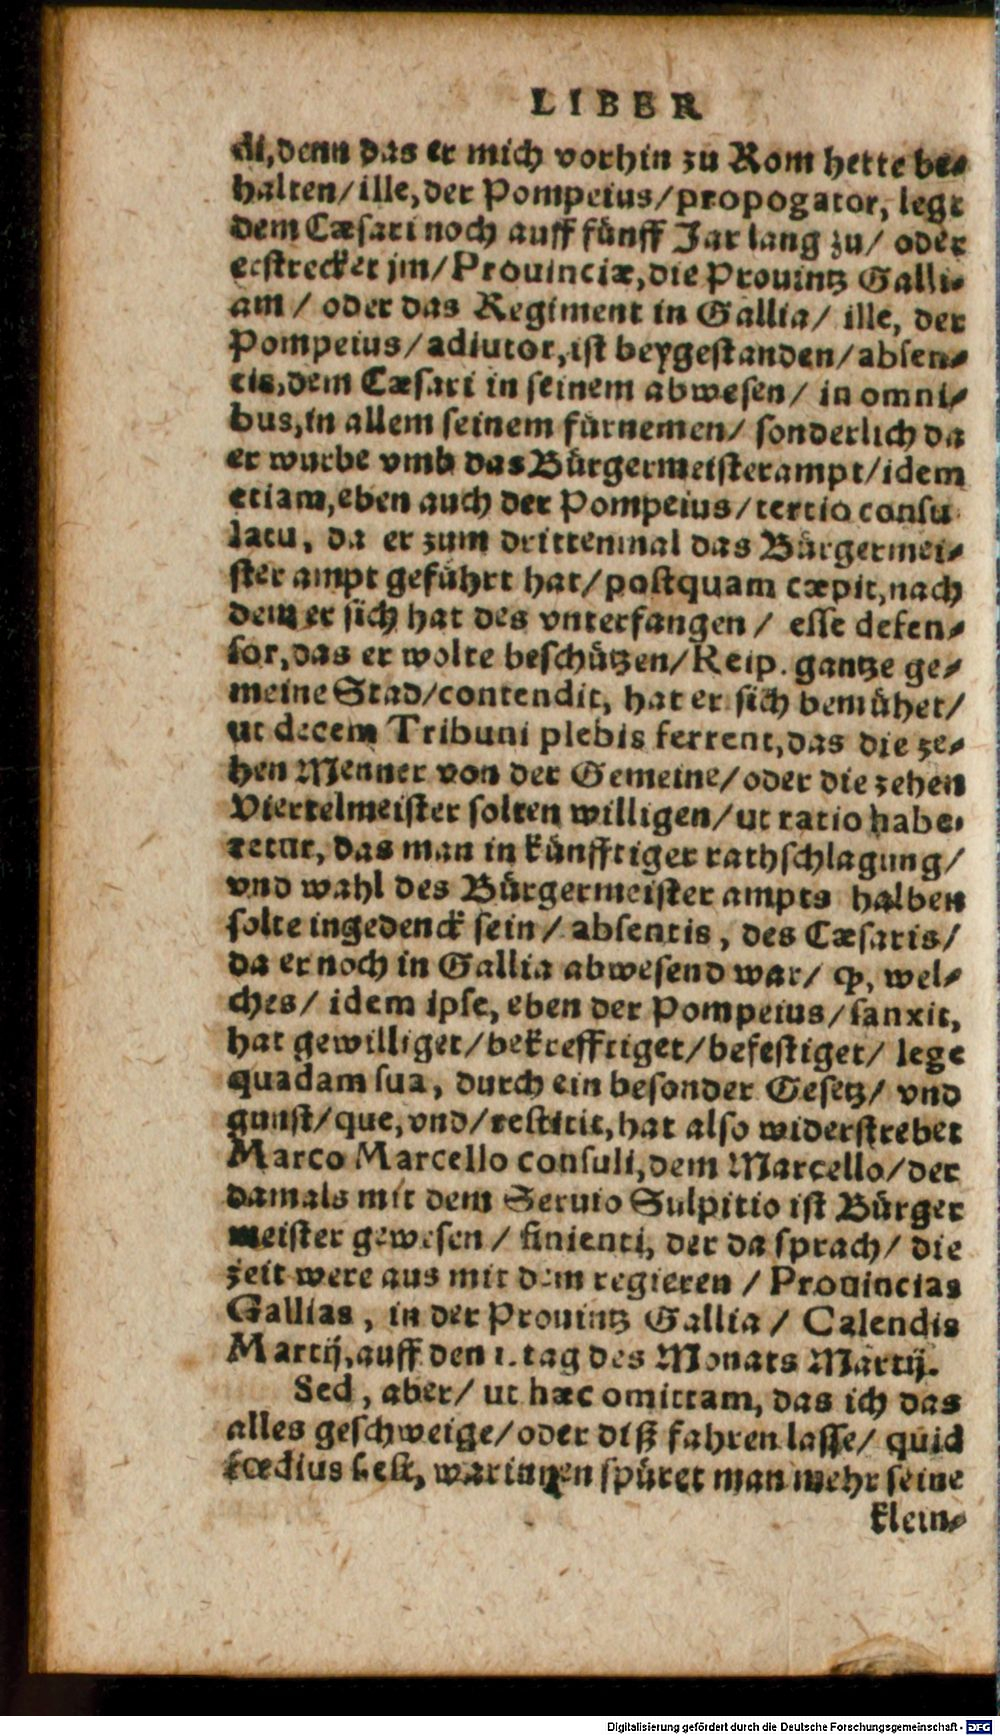 LIBER
di, denn das er mich vorhin zu Rom hette be⸗
halten/ ille, der Pompeius/ propogator, legt
dem Cæsari noch auff fünff Jar lang zu/ oder
erstrecket jm/ Prouinciæ, die Prouintz Galli⸗
am/ oder das Regiment in Gallia/ ille, der
Pompeius/ adiutor, ist beygestanden/ absen⸗
tis, dem Cæsari in seinem abwesen/ in omni⸗
bus, in allem seinem fürnemen/ sonderlich da
er wurbe vmb das Bürgermeisterampt/ idem
etiam, eben auch der Pompeius/ tertio consu
latu, da er zum drittenmal das Bürgermei⸗
ster ampt geführt hat/ postquam cæpit, nach
dem er sich hat des vnterfangen/ esse defen⸗
sor, das er wolte beschützen/ Reip. gantze ge⸗
meine Stad/ contendit, hat er sich bemühet/
ut decem Tribuni plebis ferrent, das die ze⸗
hen Menner von der Gemeine/ oder die zehen
Viertelmeister solten willigen/ ut ratio habe⸗
retur, das man in künfftiger rathschlagung/
vnd wahl des Bürgermeister ampts halben
solte ingedenck sein/ absentis, des Cæsaris/
da er noch in Gallia abwesend war/ ꝙ, wel⸗
ches/ idem ipse, eben der Pompeius/ sanxit,
hat gewilliget/ bekrefftiget/ befestiget/ lege
quadam sua, durch ein besonder Gesetz/ vnd
gunst/ que, vnd/ restitit, hat also widerstrebet
Marco Marcello consuli, dem Marcello/ der
damals mit dem Seruio Sulpitio ist Bürger
meister gewesen/ finienti, der da sprach/ die
zeit were aus mit dem regieren/ Prouincias
Gallias, in der Prouintz Gallia/ Calendis
Martij, auff den 1. tag des Monats Martij.
Sed, aber/ ut hæc omittam, das ich das
alles geschweige/ oder diß fahren lasse/ quid
fœdius hest, warinnen spüret man mehr seine
klein⸗
Digitalisierung gefördert durch die Deutsche Forschungsgemeinschaft - DFG